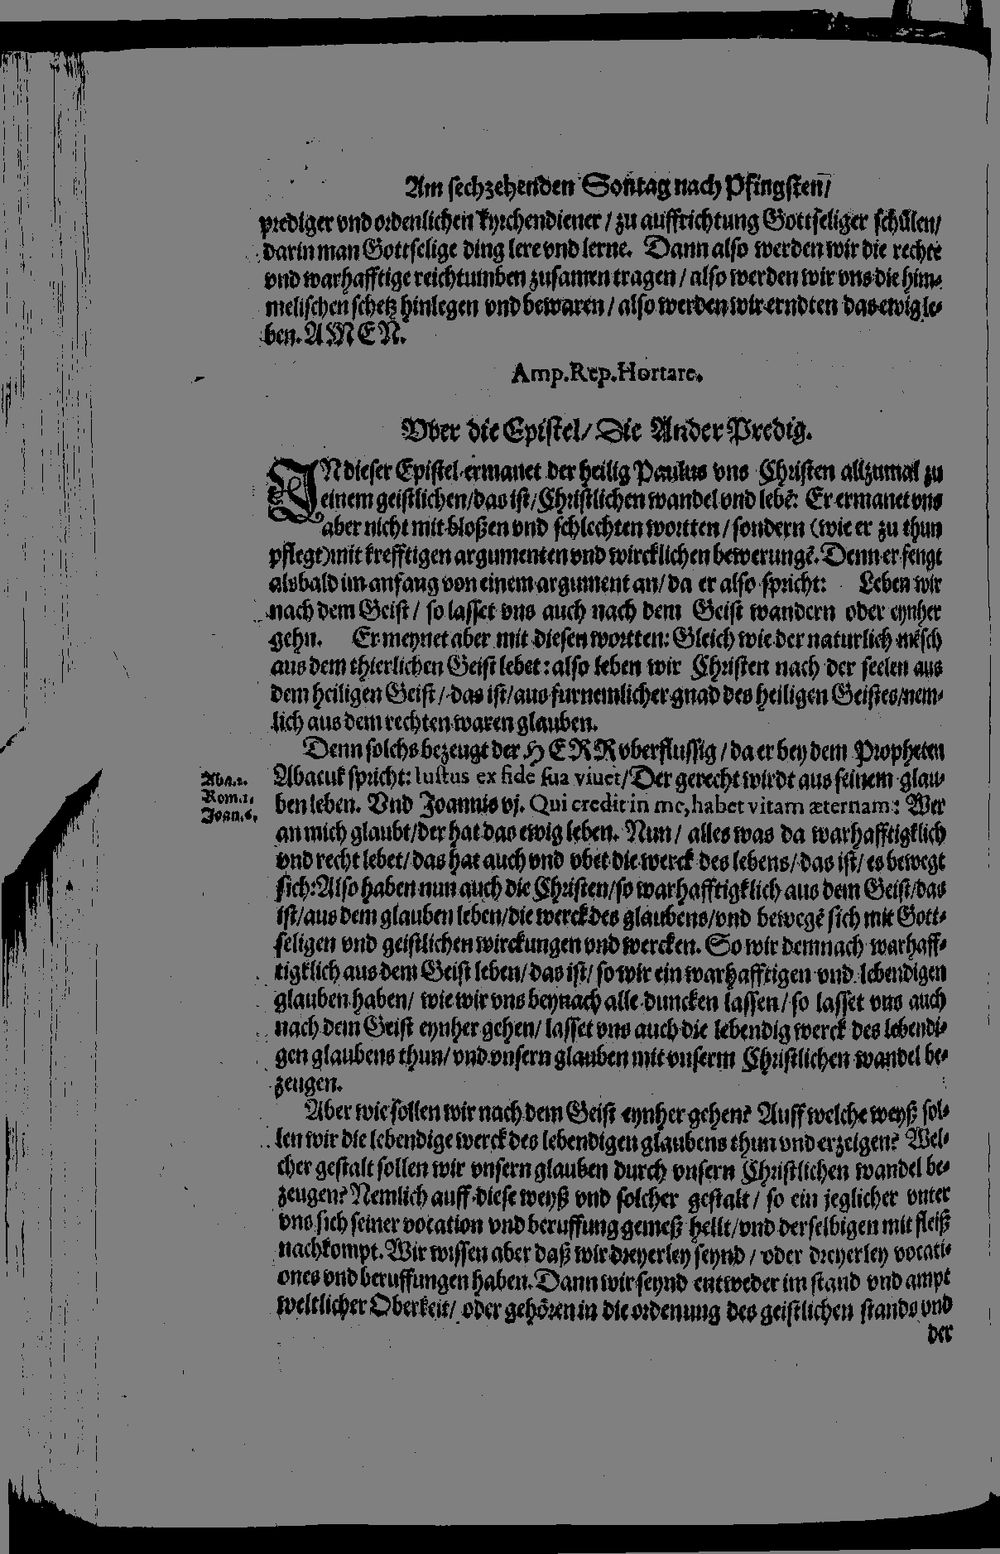 Am sechzehenden Sontag nach Pfingsten/
prediger vnd ordenlichen kyrchendiener / zu auffrichtung Gottseliger schůlen/
darin man Gottselige ding lere vnd lerne. Dann also werden wir die rechte
vnd warhafftige reichtumben zusamen tragen / also werden wir vns die him-
melischen schetz hinlegen vnd bewaren / also werden wir erndten das ewig le-
ben. AMEN.
Amp. Rep. Hortare.
Vber die Epistel/ Die Ander Predig.
IN dieser Epistel ermanet der heilig Paulus vns Christen allzumal zu
einem geistlichen/das ist/Christlichen wandel vnd lebē: Er ermanet vns
aber nicht mit bloßen vnd schlechten wortten / sondern (wie er zu thun
pflegt) mit krefftigen argumenten vnd wircklichen bewerungē. Denn er fengt
alsbald im anfang von einem argument an/ da er also spricht: Leben wir
nach dem Geist / so lasset vns auch nach dem Geist wandern oder eynher
gehn. Er meynet aber mit diesen wortten: Gleich wie der naturlich mēsch
aus dem thierlichen Geist lebet: also leben wir Christen nach der seelen aus
dem heiligen Geist / das ist/ aus furnemlicher gnad des heiligen Geistes/nem-
lich aus dem rechten waren glauben.
Denn solchs bezeugt der HERR vberflussig / da er bey dem Propheten
Aba.2.
Abacuk spricht: Iustus ex fide sua viuet/Der gerecht wirdt aus seinem glau-
Rom.1.
ben leben. Vnd Joannis vj. Qui credit in me, habet vitam æternam: Wer
Joan.6.
an mich glaubt/der hat das ewig leben. Nun/ alles was da warhafftigklich
vnd recht lebet/das hat auch vnd vbet die werck des lebens/das ist/ es bewegt
sich: Also haben nun auch die Christen/so warhafftigklich aus dem Geist/das
ist/aus dem glauben leben/die werck des glaubens/vnd bewegē sich mit Gott-
seligen vnd geistlichen wirckungen vnd wercken. So wir demnach warhaff-
tigklich aus dem Geist leben/das ist/ so wir ein warhafftigen vnd lebendigen
glauben haben/ wie wir vns beynach alle duncken lassen/ so lasset vns auch
nach dem Geist eynher gehen/ lasset vns auch die lebendig werck des lebendi-
gen glaubens thun/ vnd vnsern glauben mit vnserm Christlichen wandel be-
zeugen.
Aber wie sollen wir nach dem Geist eynher gehen? Auff welche weyß sol-
len wir die lebendige werck des lebendigen glaubens thun vnd erzeigen? Wel-
cher gestalt sollen wir vnsern glauben durch vnsern Christlichen wandel be-
zeugen? Nemlich auff diese weyß vnd solcher gestalt / so ein jeglicher vnter
vns sich seiner vocation vnd beruffung gemeß hellt/vnd derselbigen mit fleiß
nachkompt. Wir wissen aber daß wir dreyerley seynd / oder dreyerley vocati-
ones vnd beruffungen haben. Dann wir seynd entweder im stand vnd ampt
weltlicher Oberkeit/ oder gehören in die ordenung des geistlichen stands vnd
der